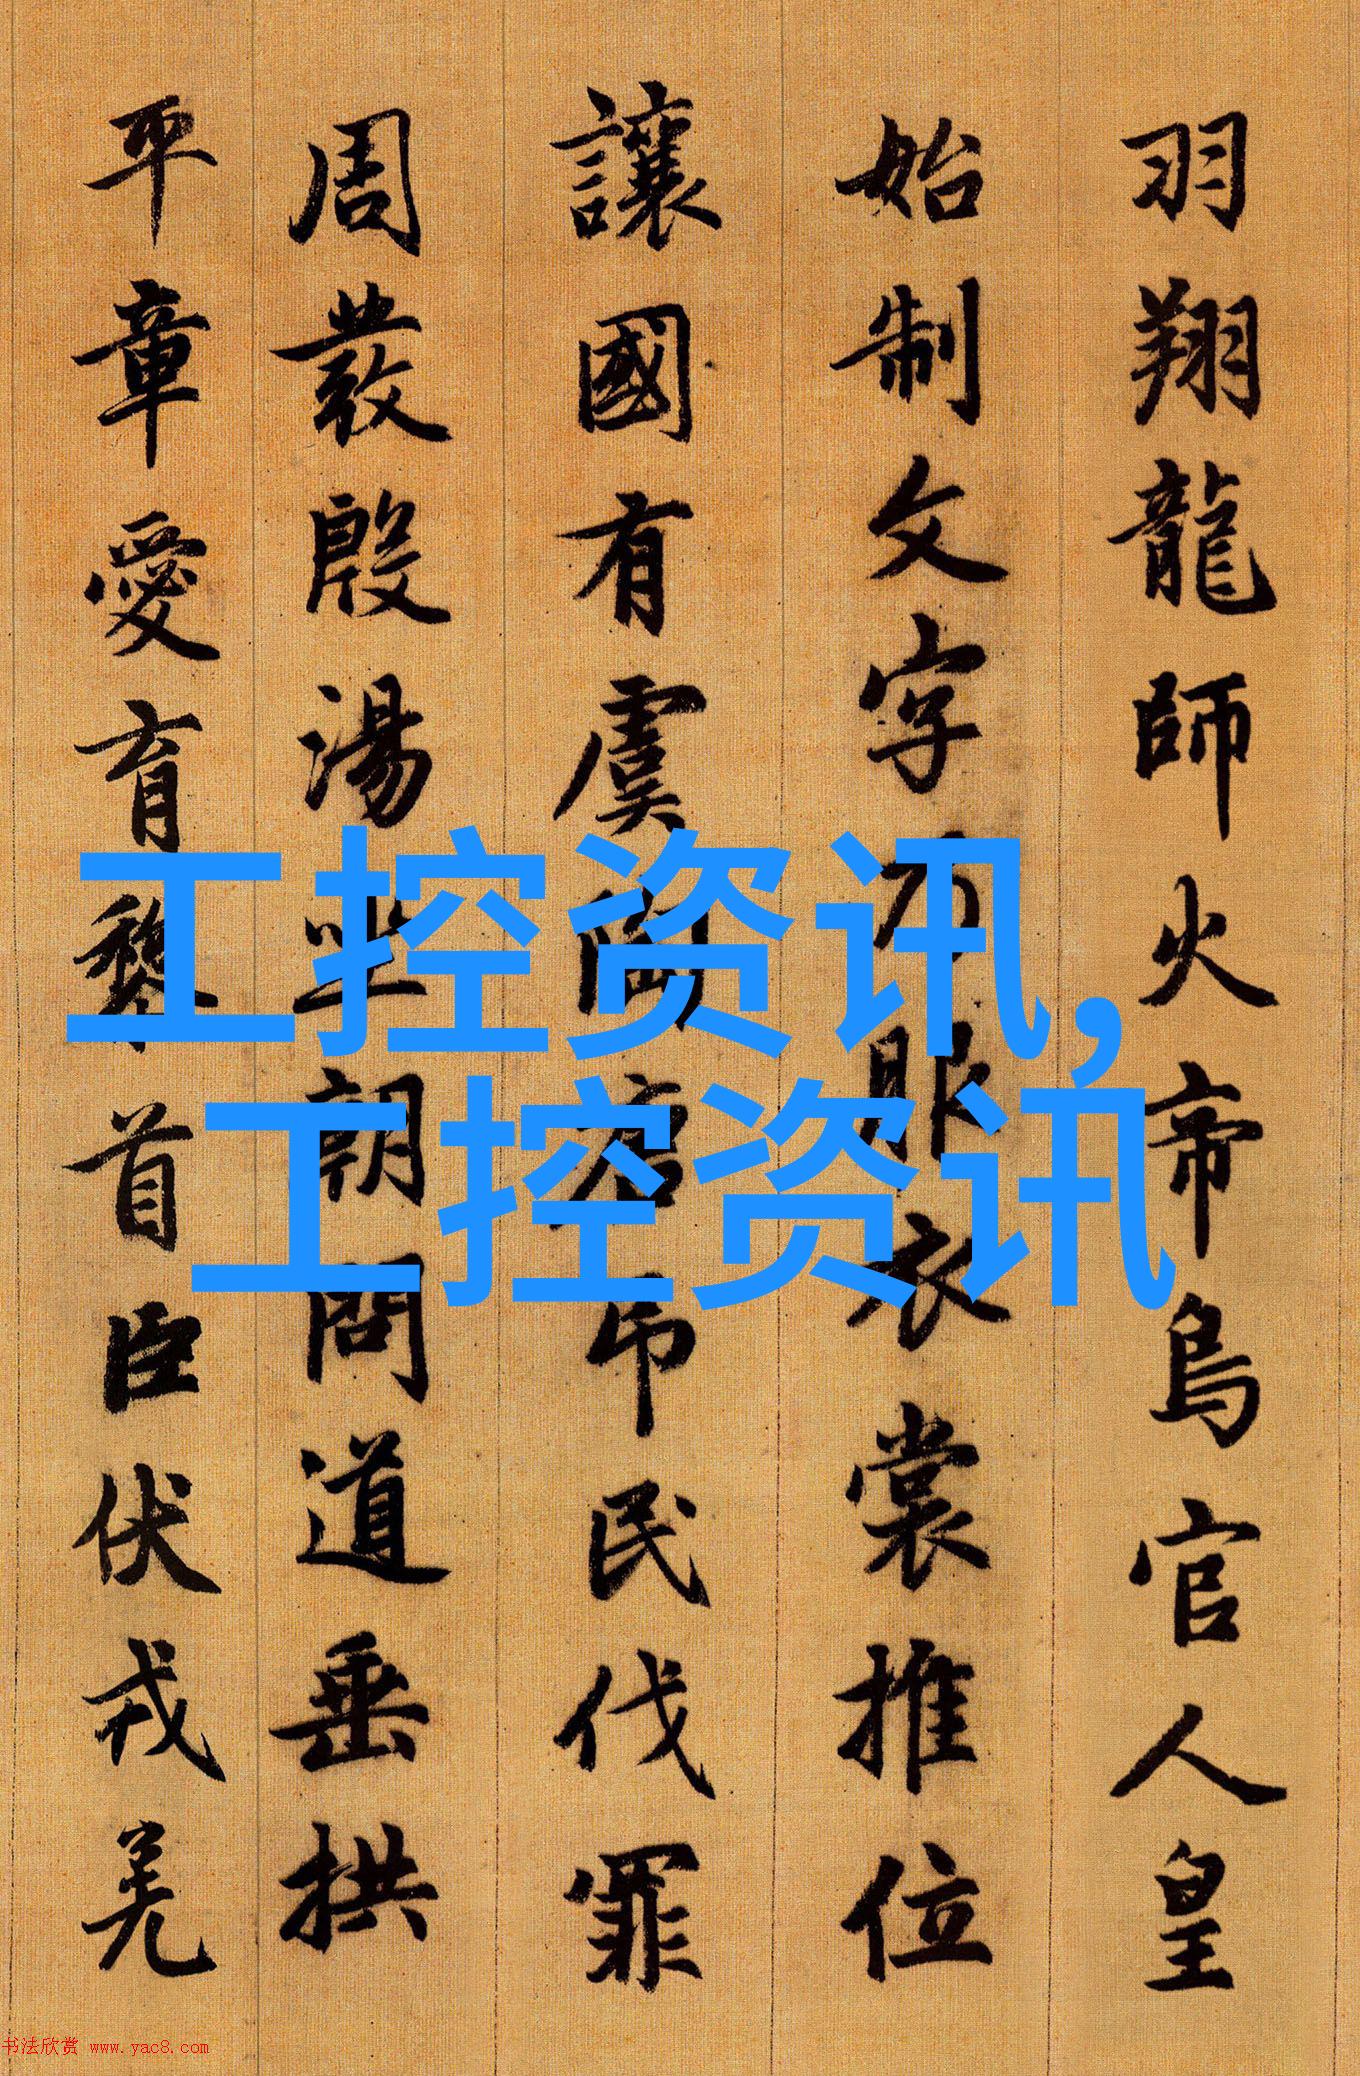 羽翔龍師火帝鳥官人皇
始制文字乃服衣裳推位
讓國有虞陶唐吊民伐罪
周發殷湯坐朝問道垂拱
平章愛育黎首臣伏戎羌
工控资讯,
工控资讯
书法欣赏 www.yac8.com